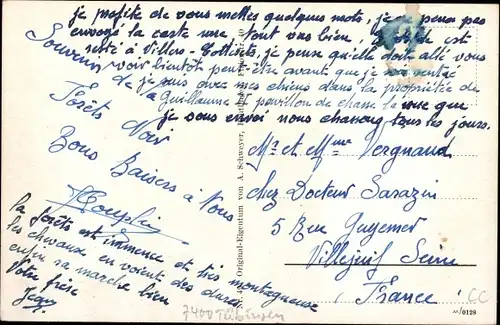 je profite de vous mettre quelques mots, je ne peux pas
envoyé la carte une, tout vas bien, est
resté à Villers-Cotterets, je pense qu'elle doit allé vous
voir bientôt peut-être avant que je sois rentré
je suis avec mes chiens dans la propriété de
Guillaume le pavillon de chasse la vue que
je vous envoi nous chassons tous les jours.
Souvenir
de la
Forêts Noir
Bons Baisers à Vous
la forêts est immence et très montagneuse
les chevaux en voient des dures
enfin sa marche bien
Votre frère
Original-Eigentum von A. Schweyer,
Mr et Mme Vergnaud
chez Docteur Sarazin
5 Rue Guynemer
Villejuif Seine
France
7400 Tübingen
CC
0128